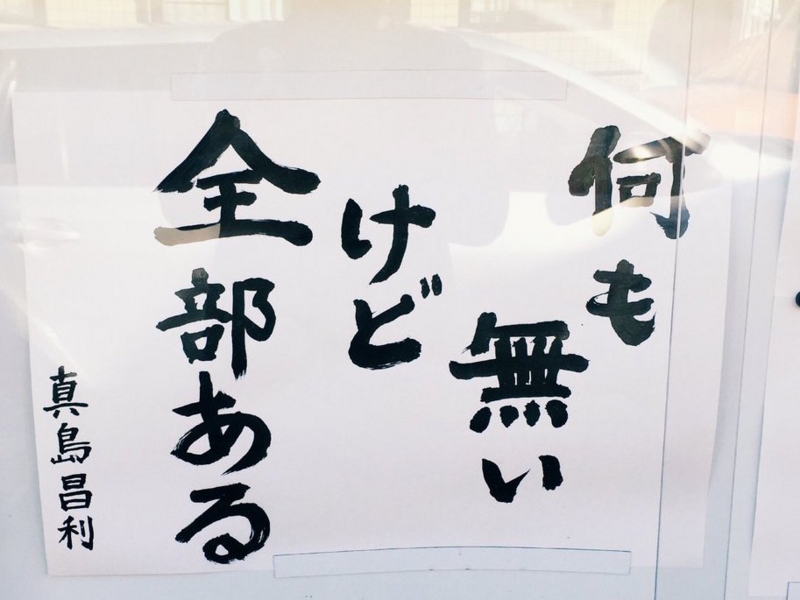 何も
無い
けど
全部ある
真島昌利